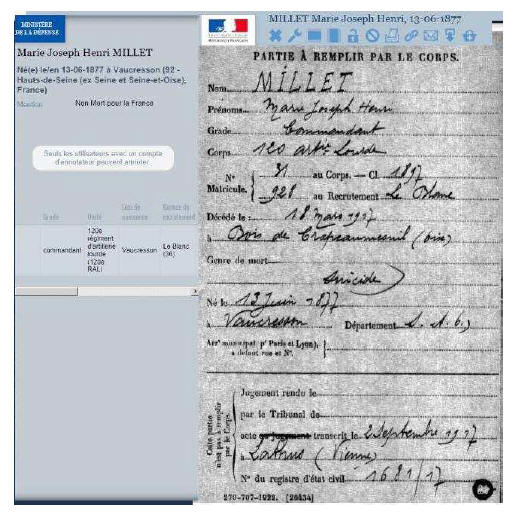 MINISTÈRE
DE LA DÉFENSE
Marie Joseph Henri MILLET
Né(e) le/en 13-06-1877 à Vaucresson (92 -
Hauts-de-Seine (ex Seine et Seine-et-Oise),
France)
Mention Non Mort pour la France
Seuls les utilisateurs avec un compte
d'annotateur peuvent annoter.
Grade Unité Lieu de naissance Bureau de recrutement
commandant 120e régiment d'artillerie lourde (120e RAL) Vaucresson Le Blanc (36)
MILLET Marie Joseph Henri, 13-06-1877
PARTIE À REMPLIR PAR LE CORPS.
Nom MILLET
Prénoms Marie Joseph Henri
Grade Commandant
Corps 120 artie Lourde
N° 31 au Corps. — Cl. 1897
Matricule. 928 au Recrutement Le Blanc
Décédé le : 18 mars 1917
à Bois de (Oise)
Genre de mort
Suicide
Né le 13 Juin 1877
à Vaucresson Département S. & O.
Arrt municipal (pr Paris et Lyon),
à défaut rue et N°.
Cette partie
n'est pas à remplir
par le Corps.
Jugement rendu le
par le Tribunal de
acte ou jugement transcrit le 2 Septembre 1917
à Lathus (Vienne)
N° du registre d'état civil 1681/17
270-707-1922. [26434]